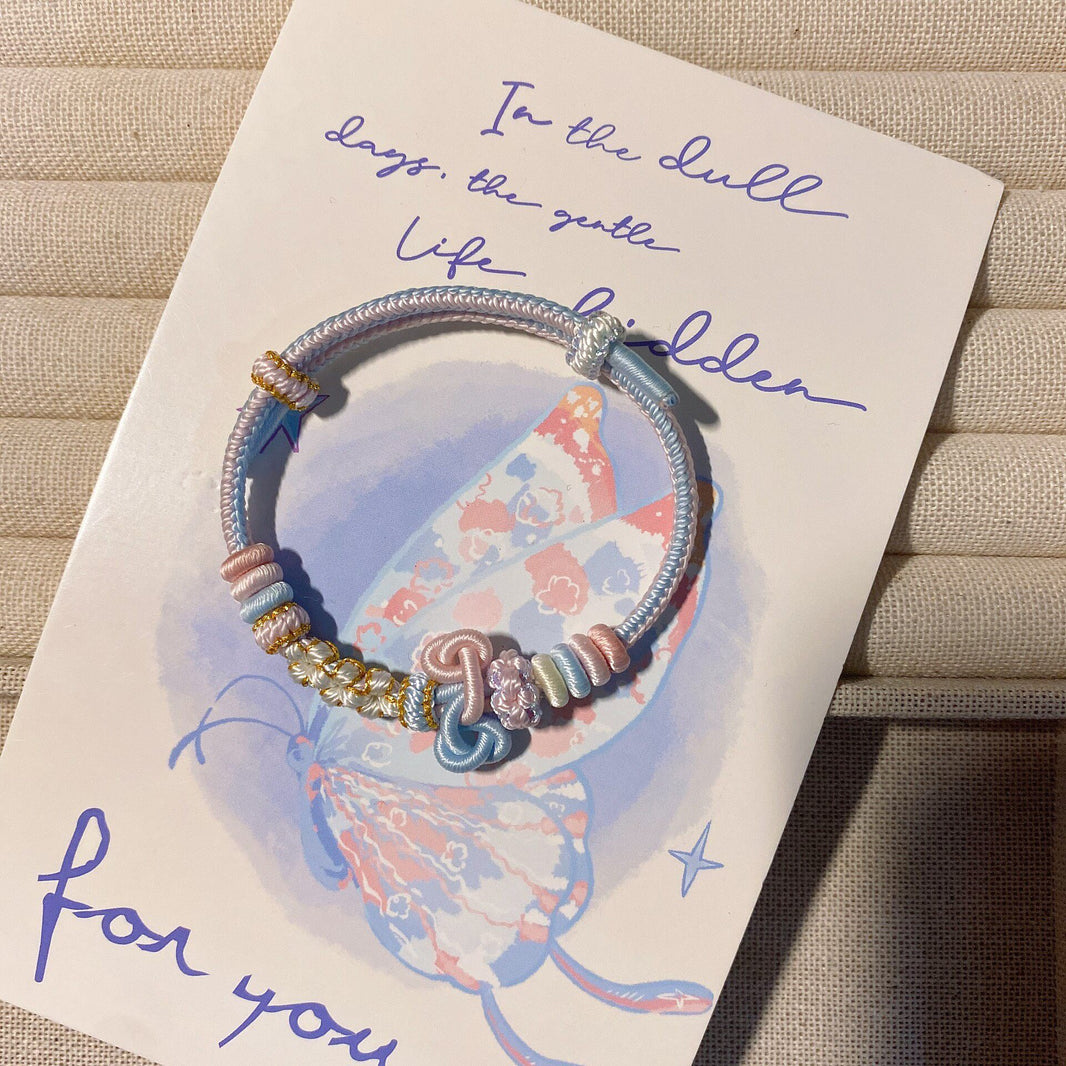 In the dull
days, the gentle
life hidden
for you